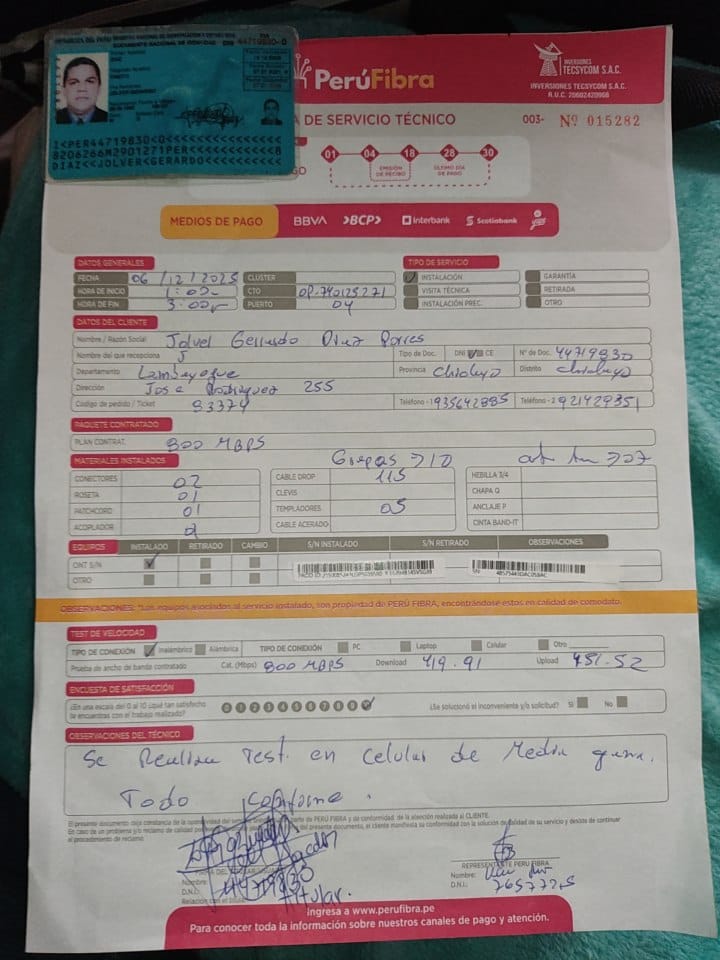 REPÚBLICA DEL PERÚ
DOCUMENTO NACIONAL DE IDENTIDAD
44719830-0
I<PER44719830<0<<<<<<<<<<<<<<<
8206266M2901271PER<<<<<<<<<<<8
DIAZ<<JOLVER<GERARDO<<<<<<<<<<
PerúFibra
INVERSIONES
TECSYCOM S.A.C.
INVERSIONES TECSYCOM S.A.C.
R.U.C. 20602420968
DE SERVICIO TÉCNICO
003- Nº 015282
01 04 18 28 30
EMISIÓN DE RECIBO
ÚLTIMO DÍA DE PAGO
MEDIOS DE PAGO BBVA BCP Interbank Scotiabank
DATOS GENERALES TIPO DE SERVICIO
FECHA 06/12/2025 CLUSTER INSTALACIÓN GARANTÍA
HORA DE INICIO 1:00 CTO VISITA TÉCNICA RETIRADA
HORA DE FIN 3:00 PUERTO 04 INSTALACIÓN PREC. OTRO
DATOS DEL CLIENTE
Nombre / Razón Social Gerardo Diaz
Nombre del que recepciona J Tipo de Doc. DNI CE Nº de Doc. 44719830
Departamento Lambayeque Provincia Chiclayo Distrito Chiclayo
Dirección Jose Rodriguez 255
Código de pedido / Ticket 83374 Teléfono -1 935642885 Teléfono -2 921429351
PAQUETE CONTRATADO
PLAN CONTRAT. 800 MBPS
MATERIALES INSTALADOS Grapas
CONECTORES 02 CABLE DROP 115 HEBILLA 3/4
ROSETA 01 CLEVIS CHAPA Q
PATCHCORD 01 TEMPLADORES 05 ANCLAJE P
ACOPLADOR CABLE ACERADO CINTA BAND-IT
EQUIPOS INSTALADO RETIRADO CAMBIO S/N INSTALADO S/N RETIRADO OBSERVACIONES
ONT S/N
OTRO
OBSERVACIONES: *Los equipos asociados al servicio instalado, son propiedad de PERÚ FIBRA, encontrándose estos en calidad de comodato.
TEST DE VELOCIDAD
TIPO DE CONEXIÓN Inalámbrica Alámbrica TIPO DE CONEXIÓN PC Laptop Celular Otro
Prueba de ancho de banda contratado Cat. (Mbps) 800 MBPS Download 419.91 Upload 451.52
ENCUESTA DE SATISFACCIÓN
¿En una escala del 0 al 10 ¿qué tan satisfecho
te encuentras con el trabajo realizado? 0 1 2 3 4 5 6 7 8 9 ¿Se solucionó el inconveniente y/o solicitud? Si No
OBSERVACIONES DEL TÉCNICO
Se Realiza Test en Celular de Media gama.
Todo Conforme.
El presente documento deja constancia de la PERÚ FIBRA y de conformidad de la atención realizada al CLIENTE.
En caso de un problema y/o reclamo de calidad del presente documento, el cliente manifiesta su conformidad con la solución de calidad de su servicio y desiste de continuar
el procedimiento de reclamo
Nombre:
D.N.I.: 44719830
Relación con el titular: Titular.
REPRESENTANTE PERÚ FIBRA
Nombre:
D.N.I.:
Ingresa a www.perufibra.pe
Para conocer toda la información sobre nuestros canales de pago y atención.